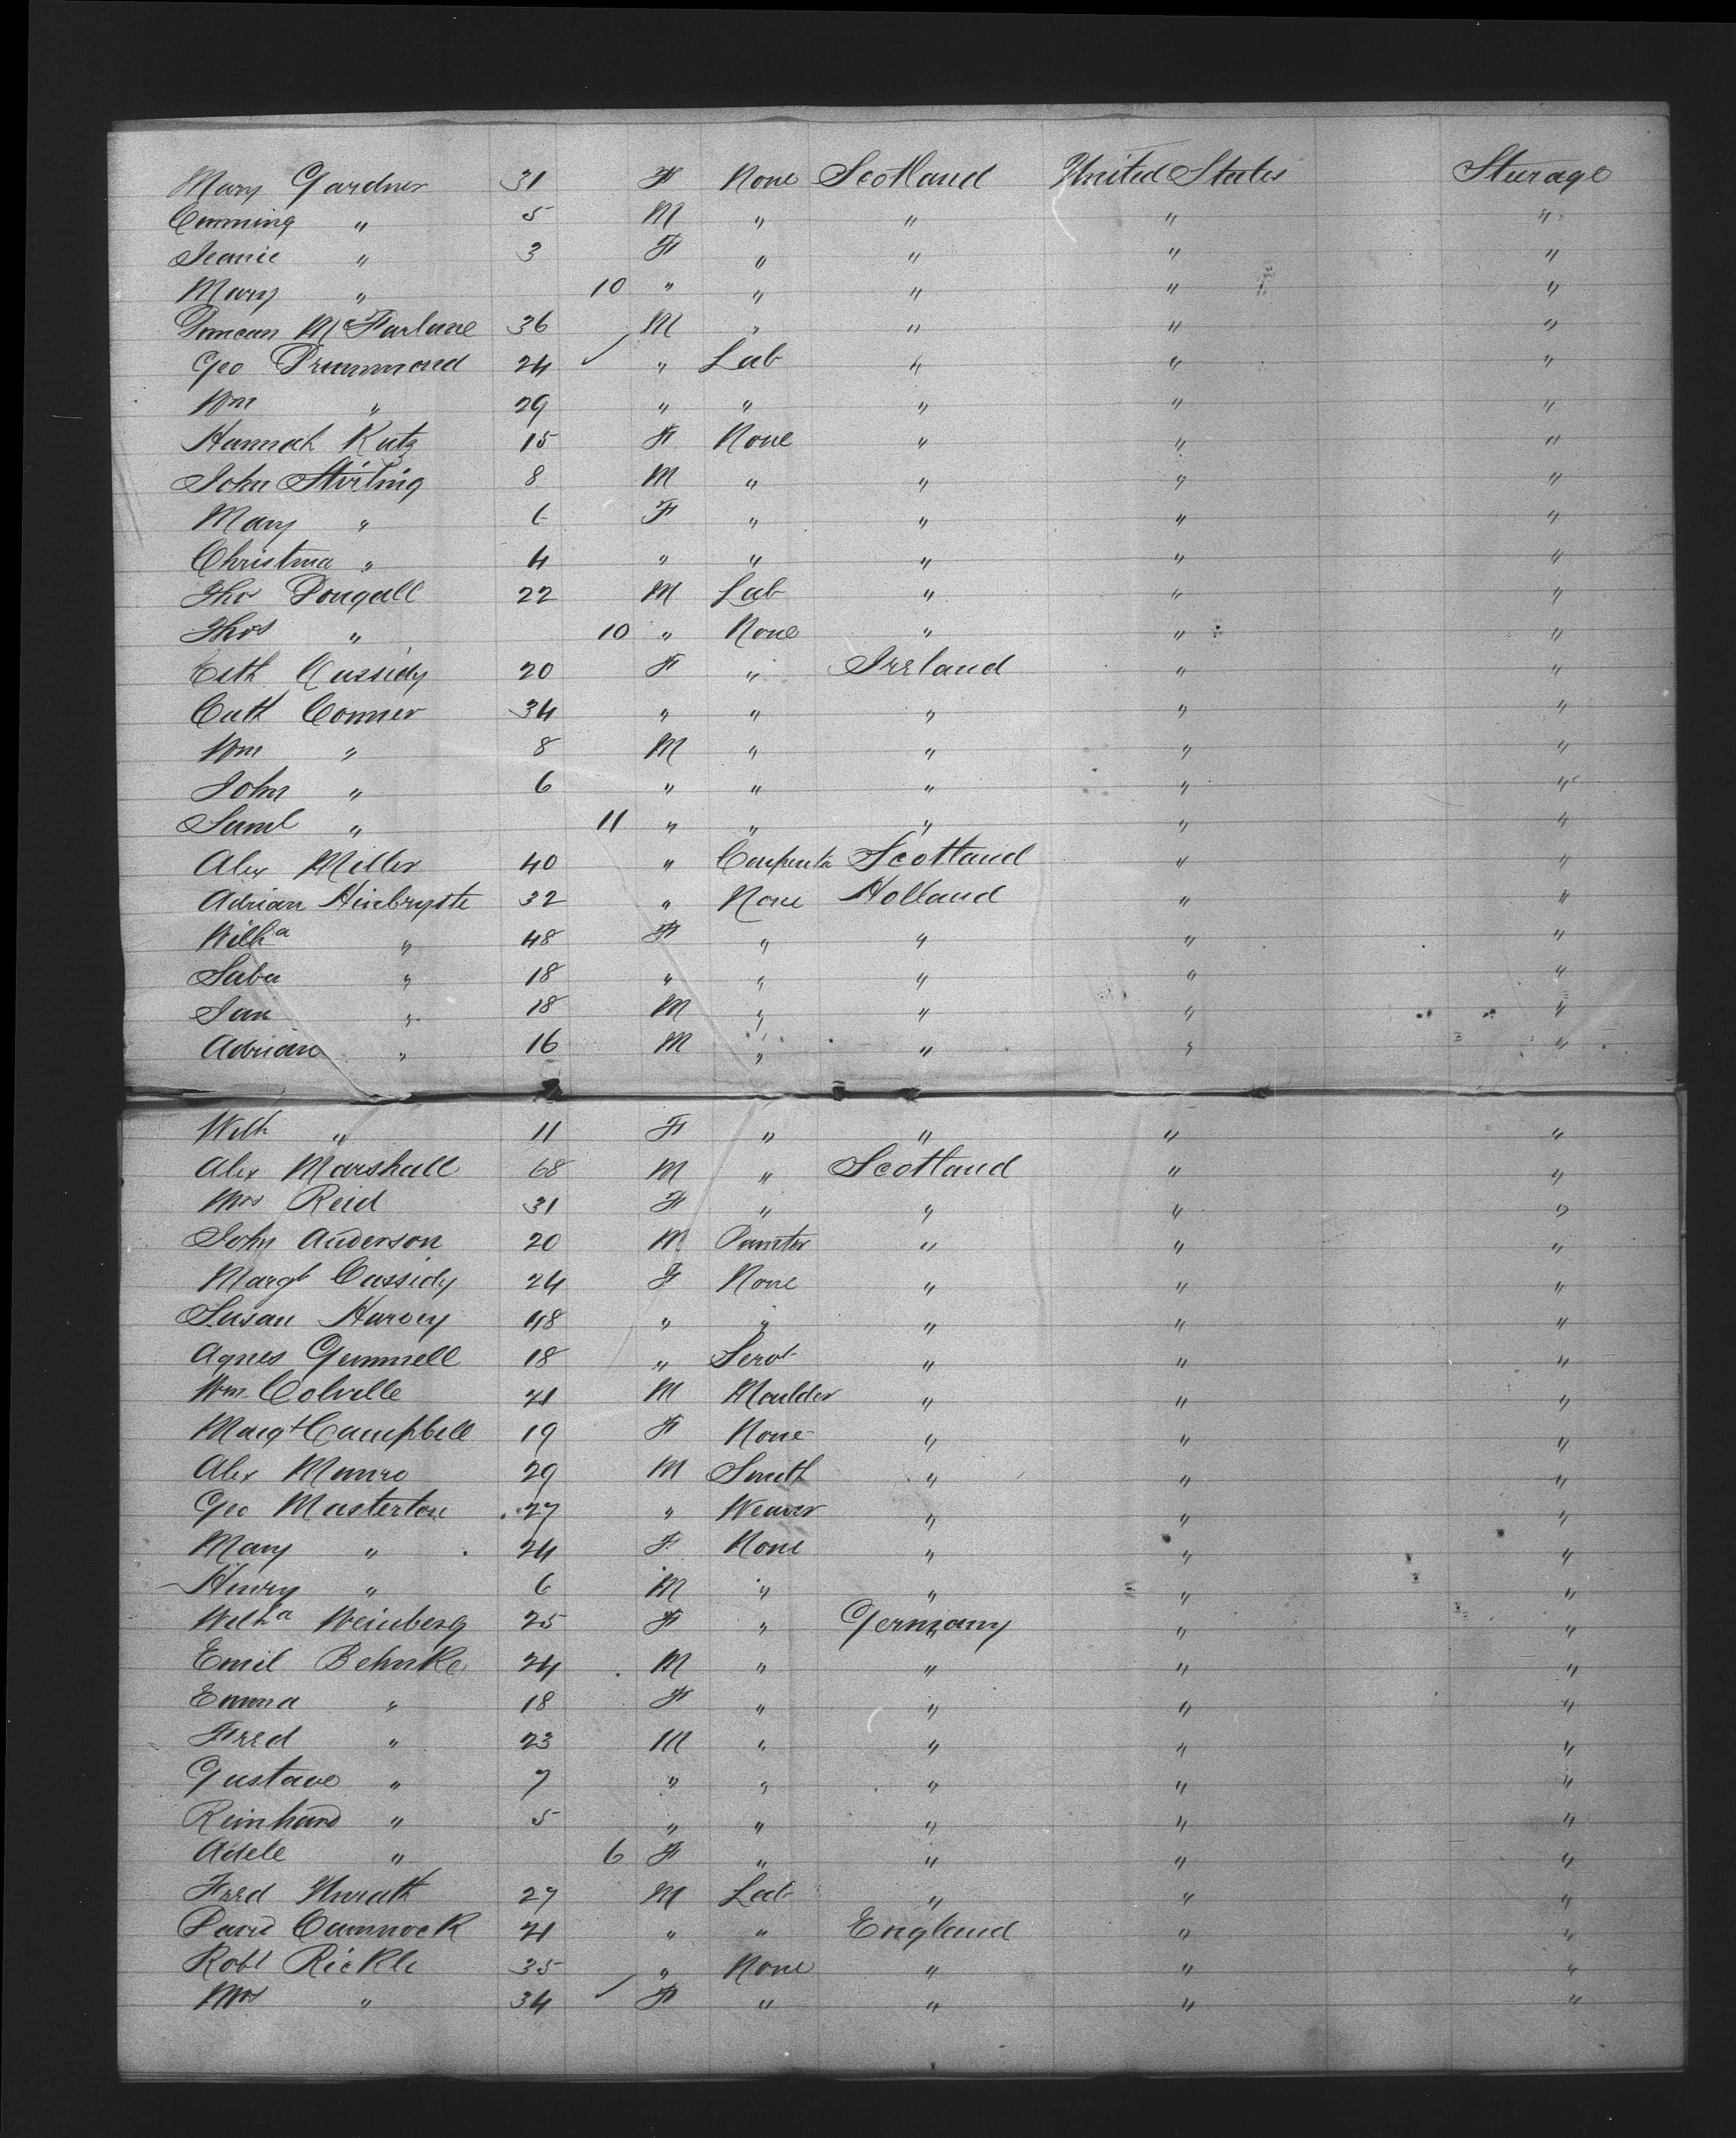 Mary Gardner 31 F None Scotland United States Sturage
Cumming " 5 M " " " "
Jeanie " 3 F " " " "
Mary " 10 " " " " "
Duncan McFarlane 36 M " " " "
Geo Drummond 24 ✓ " Lab " " "
Wm " 29 " " " " "
Hannah Kutz 15 F None " " "
John Stirling 8 M " " " "
Mary " 6 F " " " "
Christina " 4 " " " " "
Thos Dougall 22 M Lab " " "
Thos " 10 " None " " "
Cath Cassidy 20 F " Ireland " "
Cath Conner 34 " " " " "
Wm " 8 M " " " "
John " 6 " " " " "
Saml " 11 " " " " "
Alex Miller 40 " Carpenter Scotland " "
Adrian 32 " None Holland " "
Wilha " 48 F " " " "
" 18 " " " " "
Jan " 18 M " " " "
Adrian " 16 M " " " "
Wilh " 11 F " " " "
Alex Marshall 68 M " Scotland " "
Mrs Reid 31 F " " " "
John Anderson 20 M Painter " " "
Margt Cassidy 24 F None " " "
Susan Harvey 48 " " " " "
Agnes Gemmell 18 " Servt " " "
Wm Colville 21 M Moulder " " "
Margt Campbell 19 F None " " "
Alex Munro 29 M Smith " " "
Geo Masterton 27 " Weaver " " "
Mary " 24 F None " " "
Henry " 6 M " " " "
Wilha Weinberg 25 F " Germany " "
Emil Behnke 24 M " " " "
Emma " 18 F " " " "
Fred " 23 M " " " "
Gustave " 7 " " " " "
Reinhard " 5 " " " " "
Adele " 6 F " " " "
Fred Unrath 27 M Lab " " "
David Cammock 21 " " England " "
Robt Rickle 35 " None " " "
Mrs " 34 ✓ F " " " "